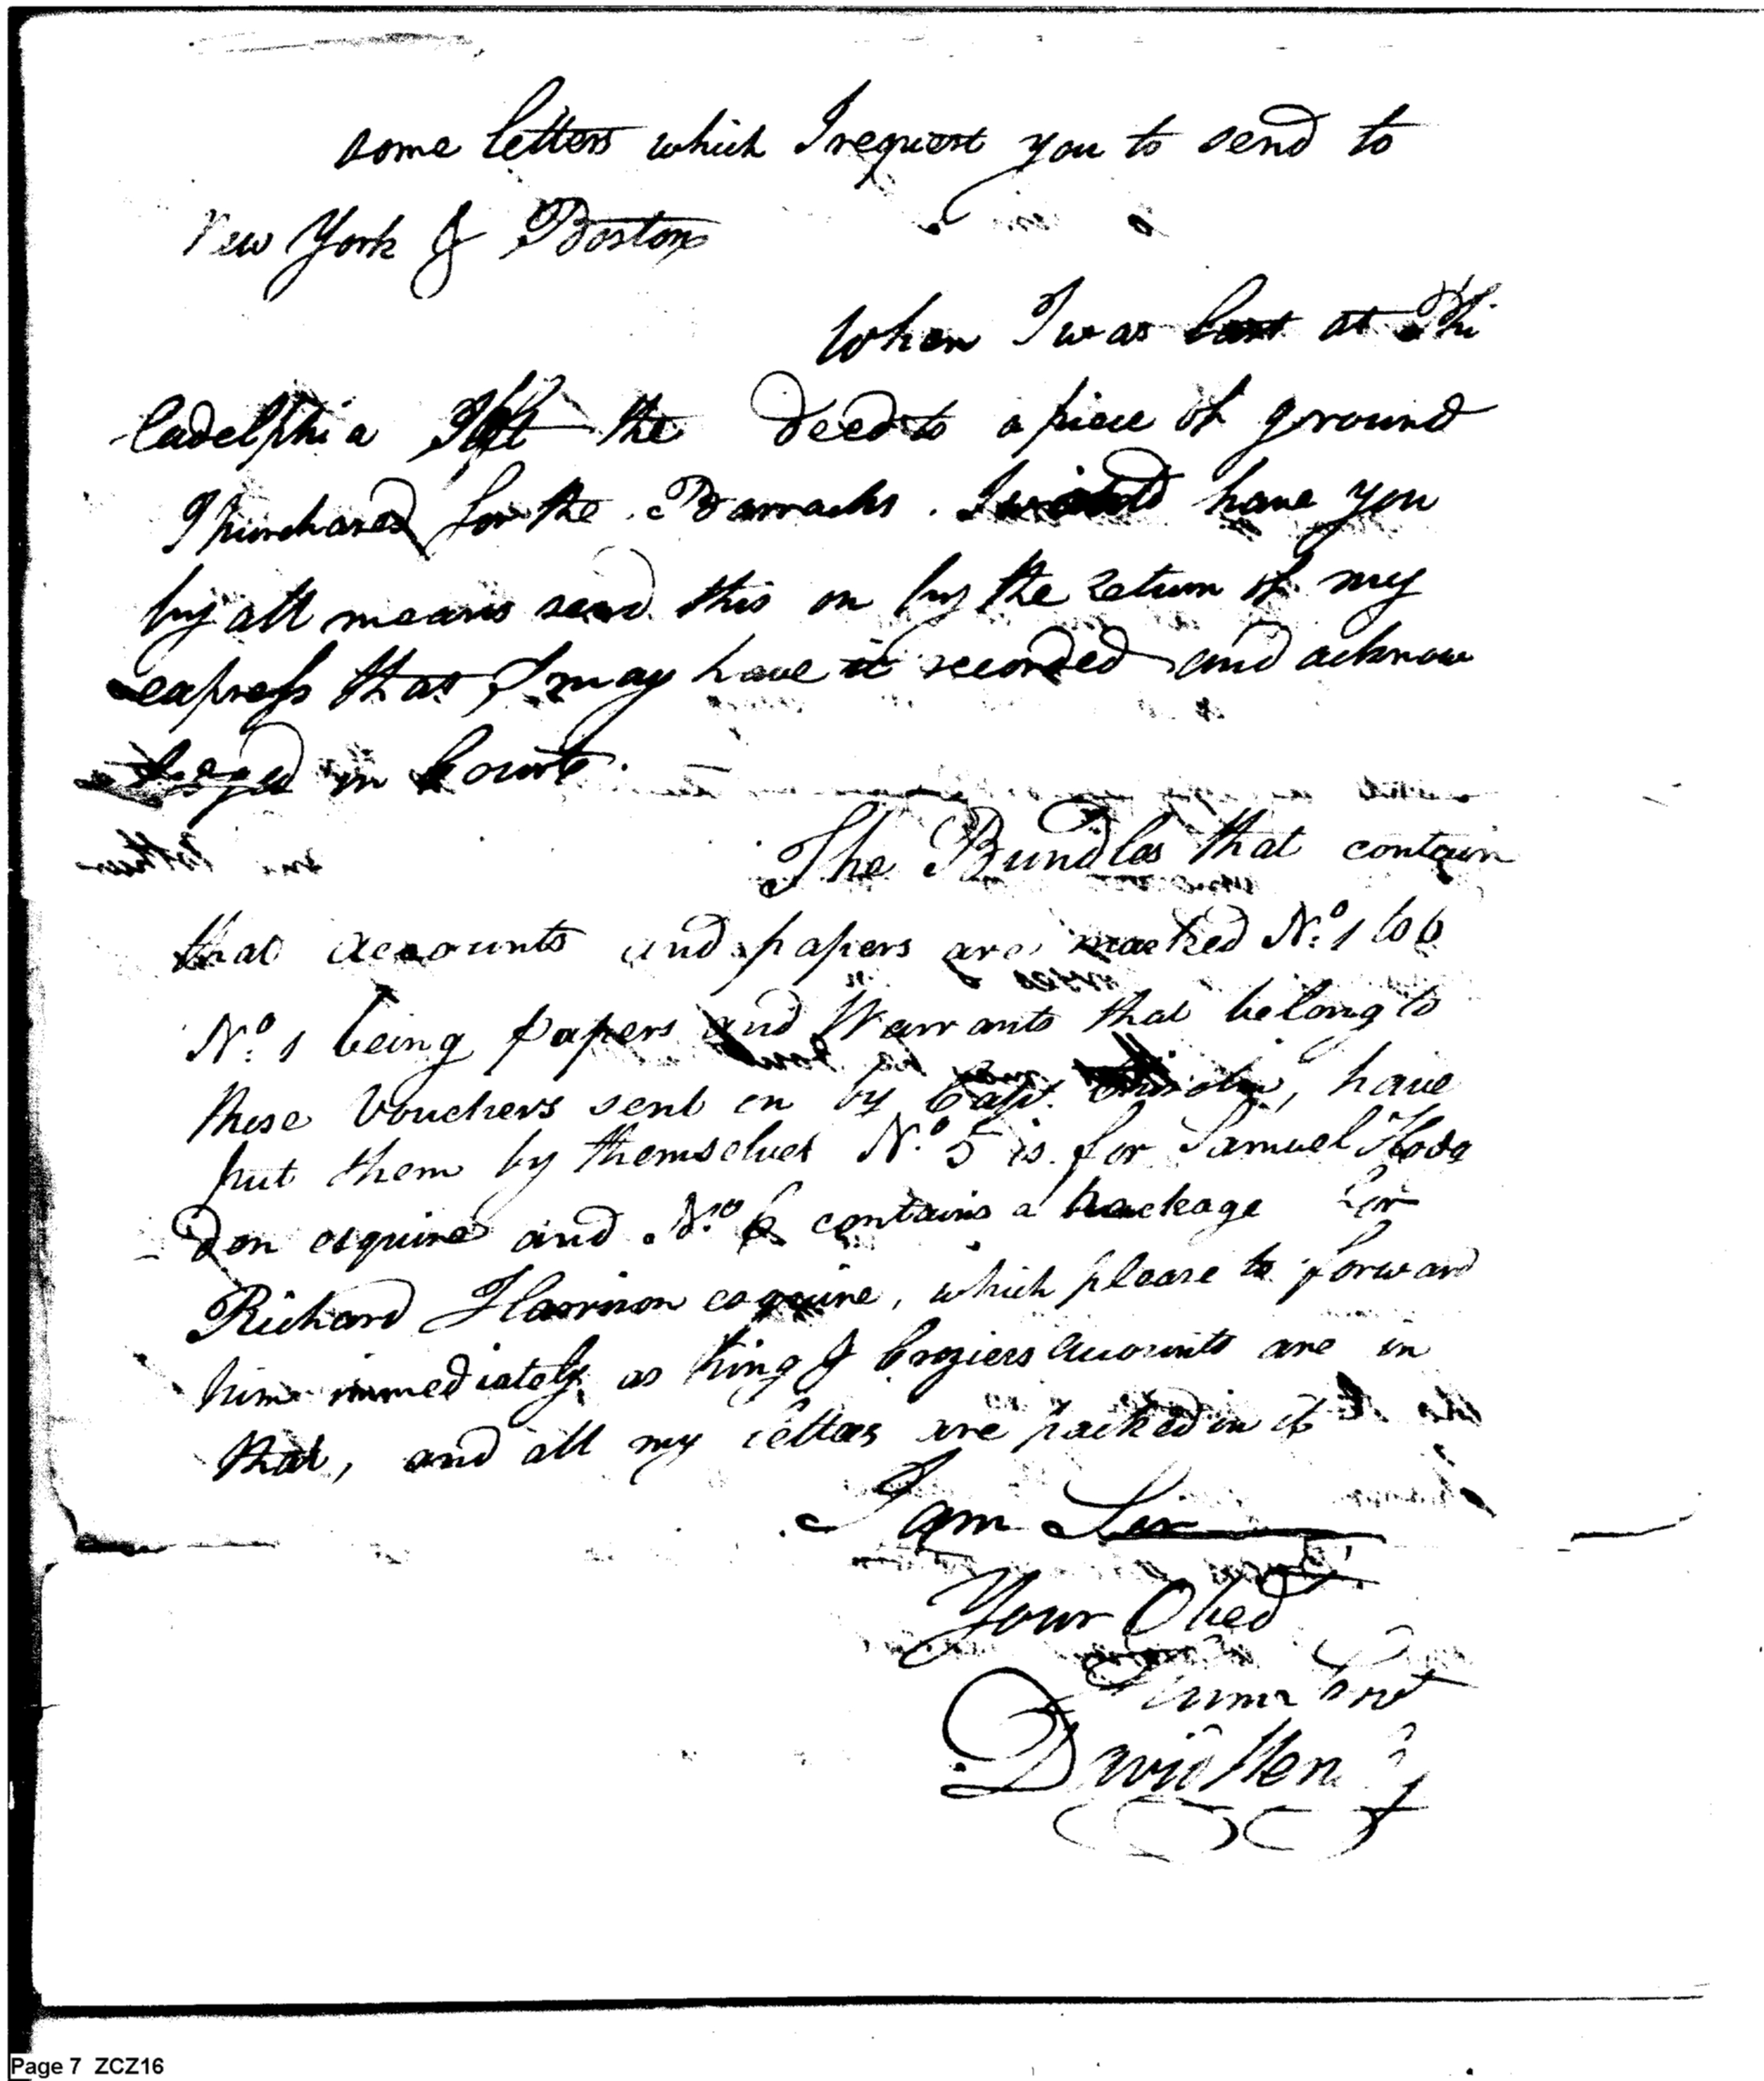 some letters which I request you to send to
New York & Boston
When I was last at Phi
ladelphia I left the deed to a piece of ground
I purchased for the Barracks. I would have you
by all means send this on by the return of my
express that I may have it recorded and acknow
ledged in Court.
The Bundles that contain
that accounts and papers are marked No. 1 to 6
No. 1 being papers and Warrants that belong to
these Vouchers sent on by Capt. have
put them by themselves No. 5 is for Samuel Hodg
don esquire and No. 6 contains a package for
Richard Harrison esquire, which please to forward
him immediately as King & Croziers accounts are in
that, and all my letters are packed in it
I am Sir
Your Obed
Humr Sret
David Henley
Page 7 ZCZ16